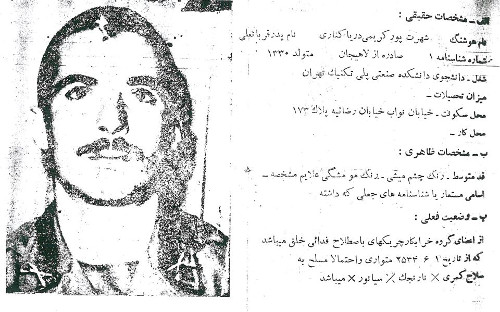 الف ـ مشخصات حقیقی :
نام هوشنگ شهرت پورکریمی دریاکناری نام پدر قربانعلی
شماره شناسنامه ۱ صادره از لاهیجان متولد ۱۳۳۰
شغل ـ دانشجوی دانشکده صنعتی پلی تکنیک تهران
میزان تحصیلات ـ
محل سکونت ـ خیابان نواب خیابان رضائیه پلاک ۱۷۳
محل کار ـ
ب ـ مشخصات ظاهری :
قد متوسط ـ رنگ چشم میشی ـ رنگ مو مشکی علایم مشخصه ـ
اسامی مستعار یا شناسنامه های جعلی که داشته
پ ـ وضعیت فعلی :
از اعضای گروه خرابکار چریکهای باصطلاح فدائی خلق میباشد
که از تاریخ ۱ ۶ ۲۵۳۴ متواری و احتمالا مسلح به
سلاح کمری × نارنجک × سیانور × میباشد